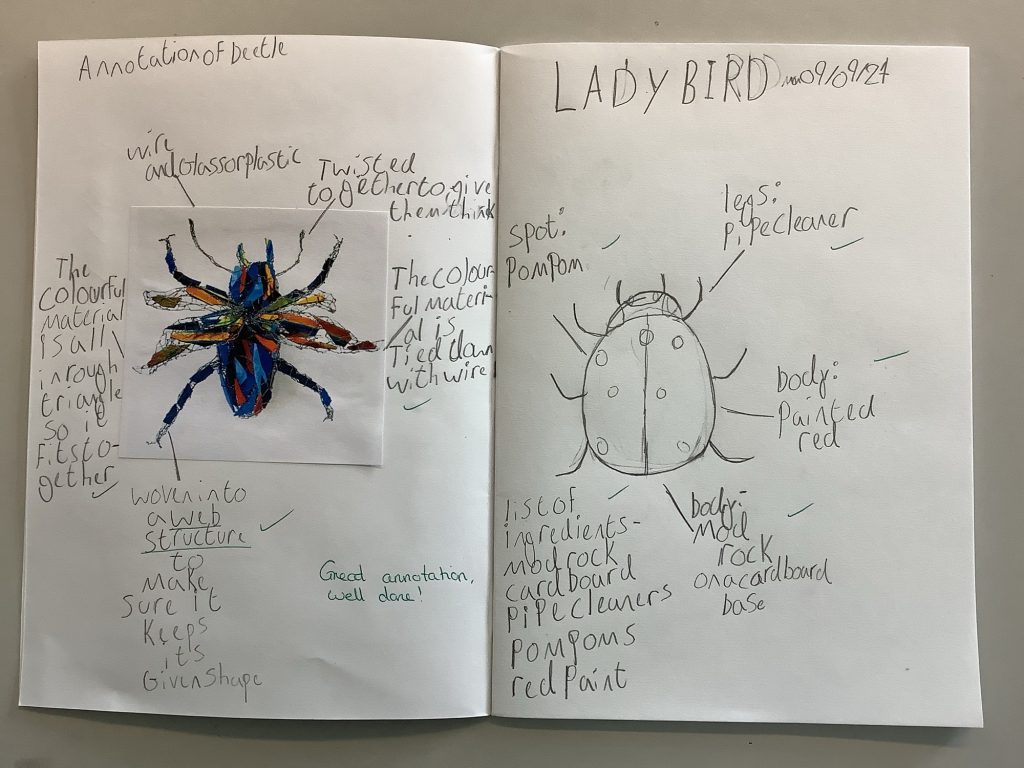 Annotation of beetle
wire
and Glass or plastic
Twisted
together to, give
them think
The
colourful
material
is all
in rough
triangle
so it
fitsto-
gether
The colour-
ful materi-
al is
Tied down
with wire
woven into
a web
structure
to
make
sure it
keeps
its
Given shape
Great annotation,
well done!
LADYBIRD 09/09/24
spot:
pompom
legs:
pipecleaner
body:
Painted
red
body:-
Mod
rock
on a cardboard
base
list of
ingredients-
modrock
cardboard
pipecleaners
pompoms
red Paint